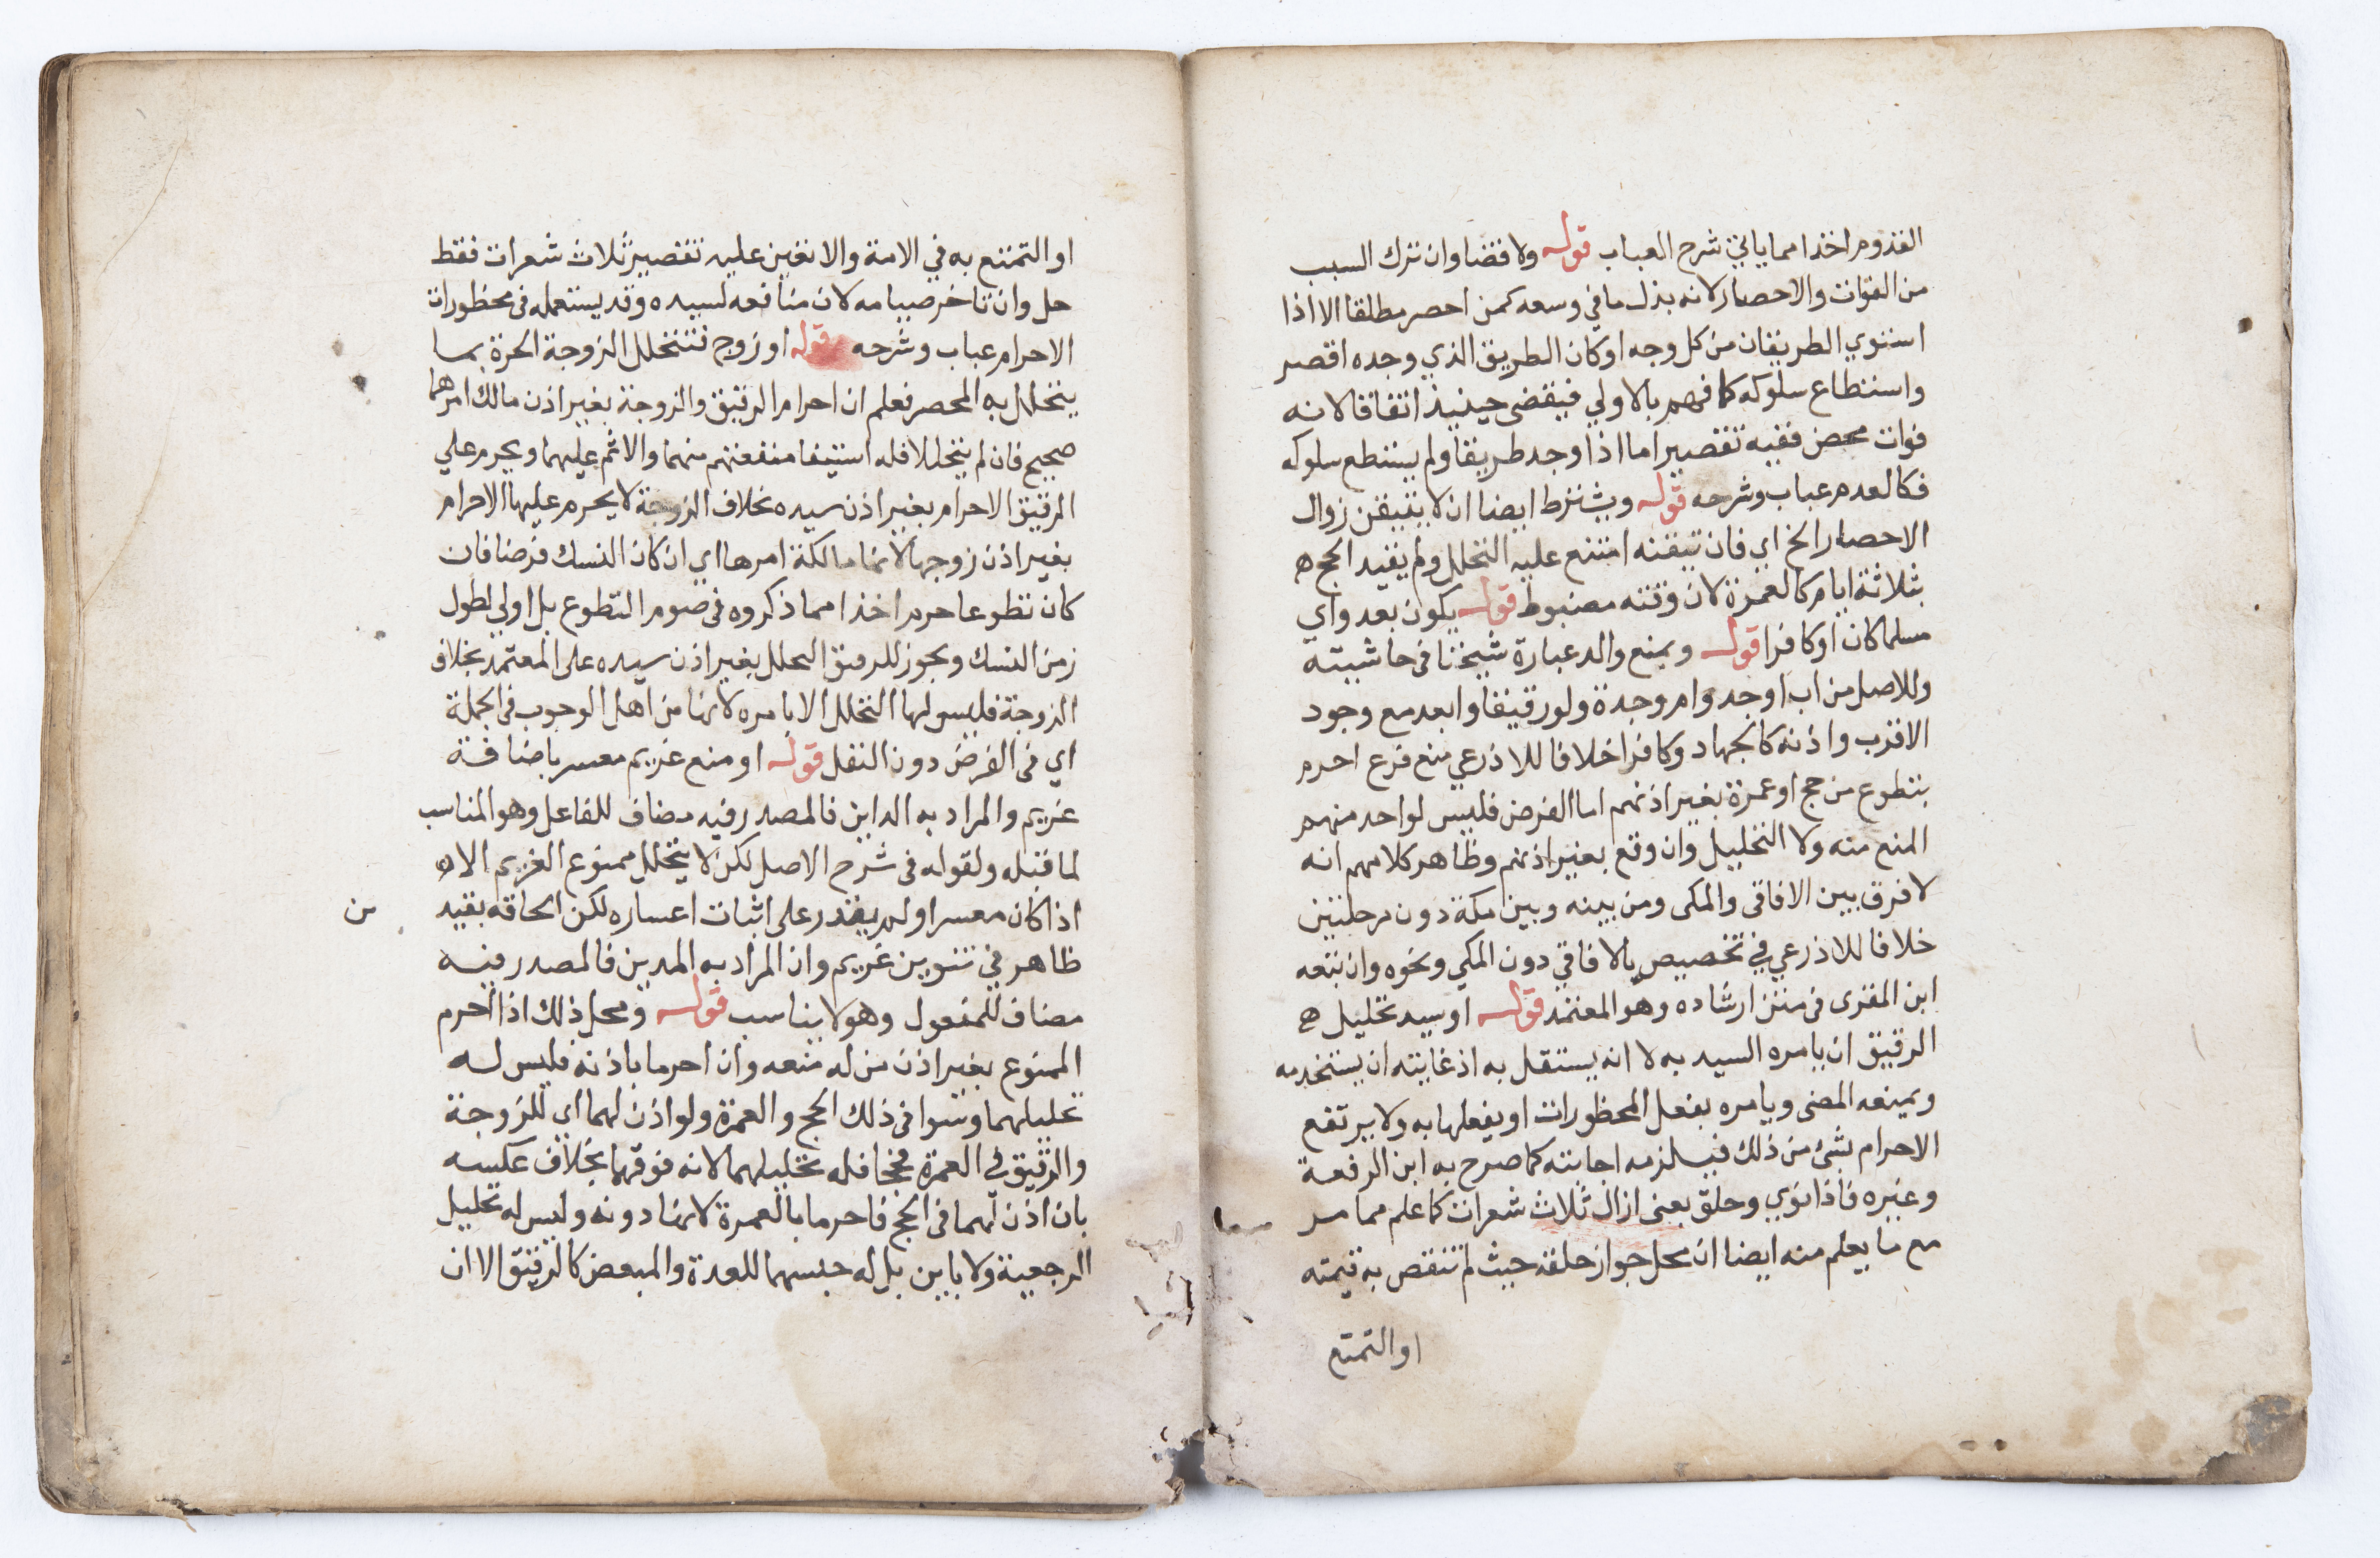 القدوم اخذا مما ياتي في شرح العباب قوله ولا قضا وان ترك السبب
من الفوات والاحصار لانه بذل ما في وسعه كمن احصر مطلقا الا اذا
استوي الطريقان من كل وجه او كان الطريق الذي وجده اقصر
واستطاع سلوكه كما فهم بالاولي فيقضى حينيذ اتفاقا لانه
فوات محض ففيه تقصير اما اذا وجد طريقا ولم يستطع سلوكه
فكالعدم عباب وشرحه قوله ويشترط ايضا ان لا يتيقن زوال
الاحصار الخ اي فان تيقنه امتنع عليه التحلل ولم يقيد الحج
بثلاثة ايام كالعمرة لان وقته مضبوط قوله يكون بعدو اي
مسلما كان او كافرا قوله وبمنع والد عبارة شيخنا في حاشيته
وللاصل من اب او جد وام وجدة ولو رقيقا وابعد مع وجود
الاقرب واذنه كالجهاد وكافرا خلافا للاذرعي منع فرع احرم
بتطوع من حج او عمرة بغير اذنهم اما الفرض فليس لواحد منهم
المنع منه ولا التحليل وان وقع بغير اذنهم وظاهر كلامهم انه
لا فرق بين الافاقى والمكى ومن بينه وبين مكة دون مرحلتين
خلافا للاذرعي في تخصيص بالافاقي دون المكي ونحوه وان تبعه
ابن المقرى فى متن ارشاده وهو المعتمد قوله او سيد تحليل
الرقيق ان يامره السيد به لا انه يستقل به اذ غايته ان يستخدمه
ويمنعه المضى ويامره بفعل المحظورات او يفعلها به ولا يرتفع
الاحرام بشئ من ذلك فيلزمه اجابته كما صرح به ابن الرفعة
وغيره فاذا نوي وحلق بمعنى ازال ثلاث شعرات كما علم مما مر
مع ما يعلم منه ايضا ان محل جواز حلقه حيث لم تنقص به قيمته
او التمتع
او التمتع به في الامة والا تعين عليه تقصير ثلاث شعرات فقط
حل وان تاخر صيامه لان منافعه لسيده وقد يستعمله فى محظورات
الاحرام عباب وشرحه قوله او زوج فتتحلل الزوجة الحرة بما
يتحلل به المحصر فعلم ان احرام الرقيق والزوجة بغير اذن مالك امرهما
صحيح فان لم يتحللا فله استيفا منفعتهم منهما والاثم عليهما ويحرم علي
الرقيق الاحرام بغير اذن سيده بخلاف الزوجة لا يحرم عليها الاحرام
بغير اذن زوجها لانها مالكة امرها اي ان كان النسك فرضا فان
كان تطوعا حرم اخذا مما ذكروه فى صوم التطوع بل اولي لطول
زمن النسك ويجوز للرقيق التحلل بغير اذن سيده على المعتمد بخلاف
الزوجة فليس لها التحلل الا بامره لانها من اهل الوجوب فى الجملة
اي فى الفرض دون النفل قوله او منع غريم معسر باضافة
غريم والمراد به الداين فالمصدر فيه مضاف للفاعل وهو المناسب
لما قبله ولقوله فى شرح الاصل لكن لا يتحلل ممنوع الغريم الا
اذا كان معسرا ولم يقدر على اثبات اعساره لكن الحاقه بقيد من
ظاهر في تنوين غريم وان المراد به المدين فالمصدر فيه
مضاف للمفعول وهو لا يناسب قوله ومحل ذلك اذا احرم
الممنوع بغير اذن من له منعه وان احرما باذنه فليس له
تحليلهما وسوا فى ذلك الحج والعمرة ولو اذن لهما اي للزوجة
والرقيق في العمرة فحجا فله تحليلهما لانه فوقها بخلاف عكسه
بان اذن لهما فى الحج فاحرما بالعمرة لانها دونه وليس له تحليل
الرجعية ولا باين بل له حبسهما للعدة والمبعض كالرقيق الا ان